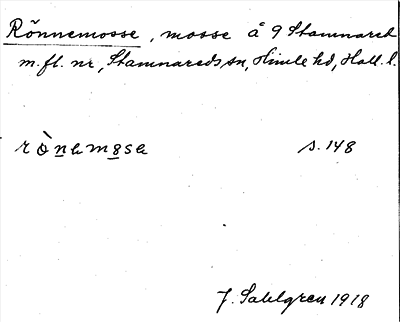 Rönnemosse, mosse å 9 Stamnared
m.fl. nr, Stamnareds sn, Himle hd, Hall. l.
rò̤nemo̤se s. 148
J. Sahlgren 1918